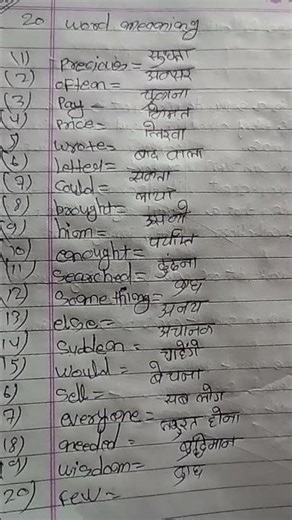 20 word meaning
(1) Precious =
(2) often = अक्सर
(3) Pay =
(4) Price = किमत
5) wrote = लिखा
(6) letted = बाद वाला
(7) could = सकता
(8) brought = लाया
(9) him = उसको
10) enought = पर्याप्त
(11) Searched = ढुंढना
12) Something = कुछ
13) else = अन्य
14) Sudden = अचानक
15) would = चाहेंगे
6) Sell = बेचना
7) everyone = सब लोग
(8) needed = जरुरत होना
(9) wisdom = बुद्धिमान
20) few = कुछ